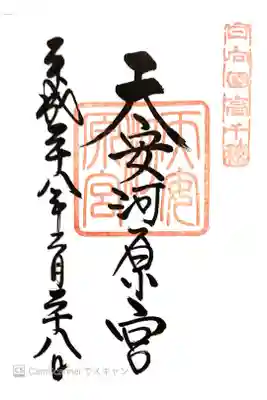 日向国高千穂
天安河原宮
天安河原宮
平成二十八年二月二十八日
CS CamScanner でスキャン